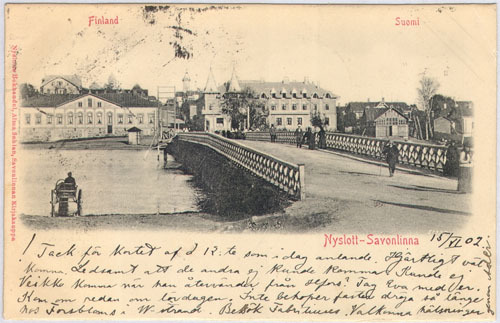 Finland
Suomi
Nyslott-Savonlinna
15/XI 02
! Tack för kortet af d 12:te som i dag anlände. Hjärtligt väl-
komna. Ledsamt att de andra ej kunde komma. Kunde ej
Veikko komma när han återvänder från Helsfors? Tag Eva med er.
Kom om redan om lördagen. Inte behöfver faster dröja så länge
hos Forsbloms i W. strand. Besök Välkomna hälsningar